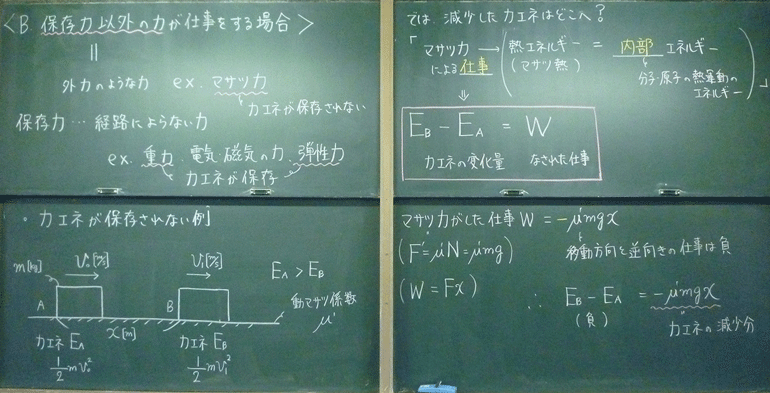 〈B. 保存力以外の力が仕事をする場合〉
||
外力のような力 ex. マサツ力
力エネが保存されない
保存力…経路によらない力
ex. 重力、電気・磁気の力、弾性力
力エネが保存
では減少した力エネはどこへ?
「マサツ力による仕事 → (熱エネルギー (マサツ熱) = 内部エネルギー
分子・原子の熱運動のエネルギー)」
⇓
E_B − E_A = W
力エネの変化量 なされた仕事
・力エネが保存されない例
m[kg] v₀[m/s] v₁[m/s] E_A > E_B
A B 動マサツ係数
x[m] μ'
力エネ E_A 力エネ E_B
½mv₀² ½mv₁²
マサツ力がした仕事 W = −μ'mgx
(F' = μ'N = μ'mg) 移動方向と逆向きの仕事は負
(W = Fx)
∴ E_B − E_A = −μ'mgx
(負) 力エネの減少分